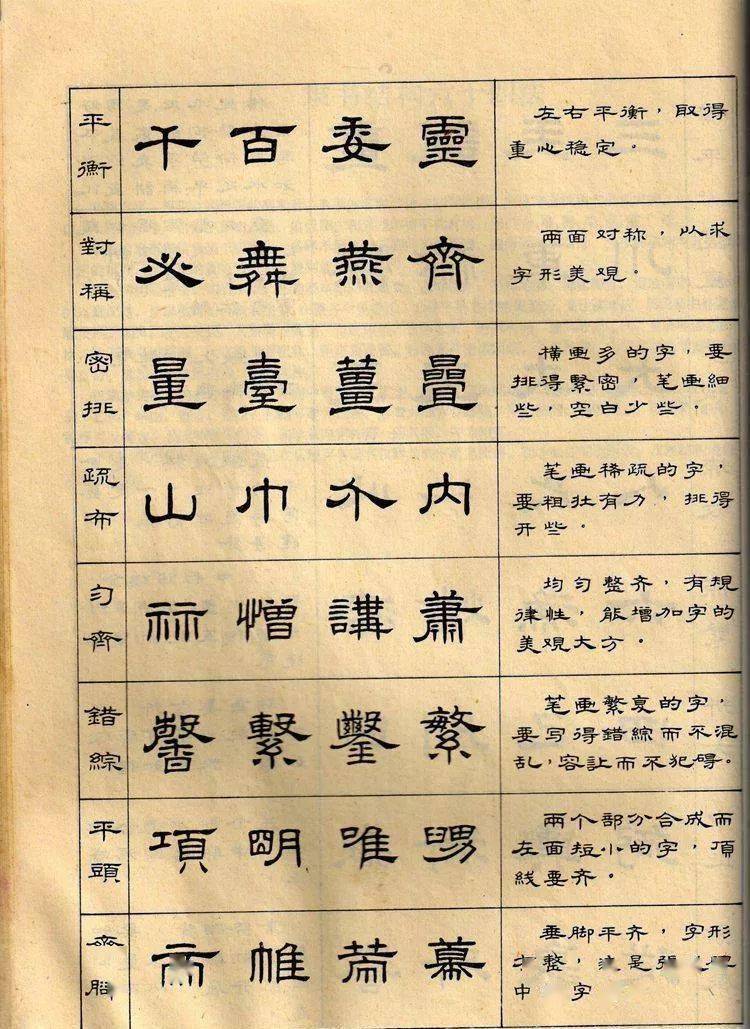 平衡
千 百 委 靈
左右平衡，取得
重心稳定。
對稱
必 舞 燕 齊
兩面对称，以求
字形美观。
密排
量 臺 薑 疊
横画多的字，要
排得緊密，笔画细
些，空白少些。
疏布
山 巾 介 内
笔画稀疏的字，
要粗壮有力，排得
开些。
匀齊
憎 講 蕭
均匀整齐，有規
律性，能增加字的
美观大方。
錯綜
馨 繫 鑿 繁
笔画繁裒的字，
要写得錯綜而不混
乱，容讓而不犯碍。
平頭
項 明 唯
兩个部分合成而
左面短小的字，頂
线要齐。
帷 幕
垂脚平齐，字形
整，
中 字